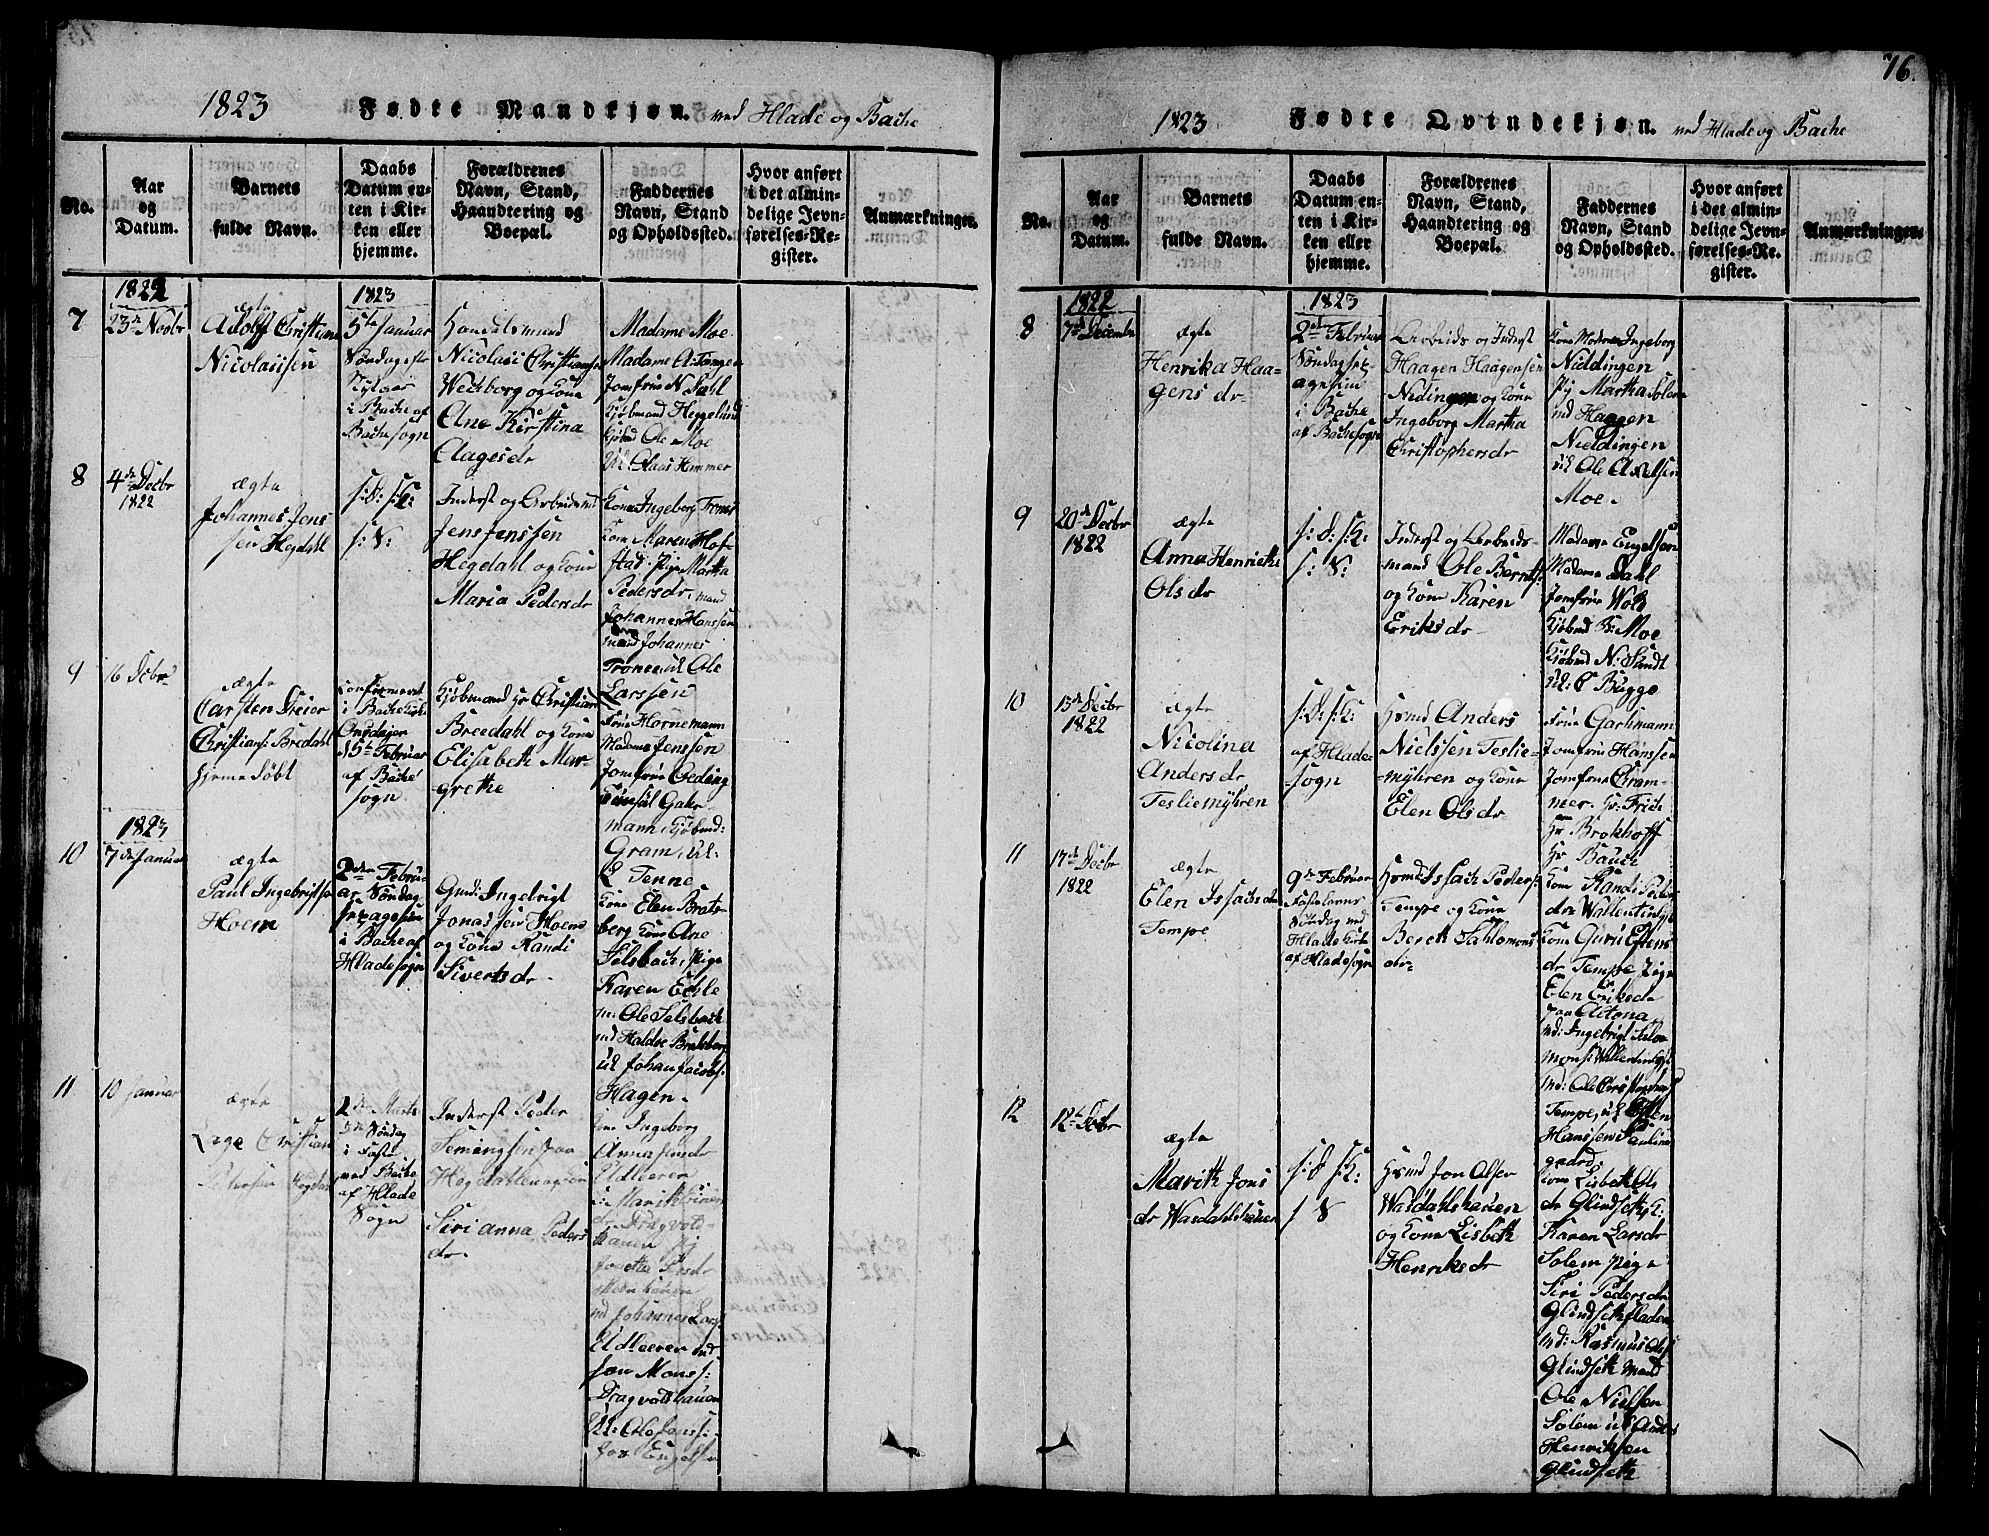 76.
1823 Fødte Mandkjøn. ved Hlade og Bache
No.
Aar
og
Datum.
Barnets
fulde Navn.
Daabs
Datum en-
ten i Kir-
ken eller
hjemme.
Forældrenes
Navn, Stand,
Haandtering og
Boepæl.
Faddernes
Navn, Stand
og Opholdssted.
Hvor anført
i det almin-
delige Jevn-
førelses-Re-
gister.
Anmærkninger.
7
1822
23de Novbr
ægte
Adolf Christian
Nicolaiisen
1823
5te Januar
Søndag efter
Nytaar
i Bache af
Bache sogn
Handelsmand
Nicolaii Christians
Wedborg og Kone
Ane Kirstina
Aagesdr
Madame Moe
Madame A: Tangen
Jomfrue N. Dahl
Kjøbmand Heggelund
Kjøbmd Ole Moe
Uk: Claas Hammer
8
4de Decbr
1822
ægte
Johannes Jens
sen Hegdahl
s: D: s: K:
s: S:
Inderst og Arbeidsmd
Jens Jenssen
Hegdahl og Kone
Maria Pedersdr
Kone Ingeborg Trones
Kone Maren Hof-
stad. Pige Martha
Pedersdr, mand
Johannes Hanssen
mand Johannes
Trones, uk Ole
Larssen
9
16 Decbr
ægte
Carsten Dreier
Christians: Bredahl
hjemedøbt
Confirmeret
i Bache Kirke
Onsdagen
d 5te Februar
af Bache
sogn
Kjøbmand Hr Christian
Breedahl og Kone
Elisabeth Mar-
grethe
Frue Hornemann
Madame Jenssen
Jomfrue Oeding
Consul Gahr-
mann, Kjøbmd:
Gram, uk:
L Tenne
10
1823
7de Januar
ægte
Paul Ingebrigtsen
Hoem
2den Febru-
ar Søndag
sexagesima
i Bache af
Hlade sogn
Gmd: Ingebrigt
Jonassen Hoem
og Kone Randi
Sivertsdr
Kone Elen Brats-
berg Kone Ane
Selsbach, Pige
Karen Echle
m: Ole Selsbach
md Haldoe Bratsberg
uk Johan Jacobs:
Hagen
11
10 Januar
ægte
Lage Christian
Pedersen Hegdal
2den Marts
3de Søndag
i Faste
ved Bache
af Hlade
Sogn
Inderst Peder
Semingsen paa
Hegdahlen og Kone
Siri anna Peders
dr
Kone Ingeborg
Anna Jensdr
Udleeren
Dragvold-
hauen Pj
md Johannes Lars:
Udleeren md
Jon Monss:
Dragvoldhauen
Uk: Ole Jenss:
hos Engelsen
1823 Fødte Qvindekjøn. ved Hlade og Bache
No.
Aar
og
Datum.
Barnets
fulde Navn.
Daabs
Datum en-
ten i Kir-
ken eller
hjemme.
Forældrenes
Navn, Stand,
Haandtering og
Boepæl.
Faddernes
Navn, Stand
og Opholdssted.
Hvor anført
i det almin-
delige Jevn-
førelses-Re-
gister.
Anmærkninger.
8
1822
7de Decembr
ægte
Henrika Haa-
gens dr
1823
2den Februar
Søndag sex-
agesima
i Bache
af Bache sogn
Arbeids og Inderst
Haagen Haagensen
Nidingen og Kone
Ingeborg Martha
Christophersdr
Kone Madame Ingeborg
Nieldingen
Pig Martha Solem
md Haagen
Nieldingen
uk Ole Axelsen
Moe
9
20de Decbr
1822
ægte
Anna Henriette
Ols dr
s: D: s: K:
s: S:
Inderst og Arbeids-
mand Ole Bernts:
og Kone Karen
Eriksdr
Madame Engelsen
Madame Dahl
Jomfrue Wold
Kjøbmd F: Moe
Kjøbmd N: Sundt
Uk: C Bugge
10
13de Decbr
1822
ægte
Nicolina
Andersdr
Tesliemyhren
s: D: s: K:
af Hlade-
sogn
Hsmd Anders
Nielssen Teslie-
myhren og Kone
Elen Olsdr
Frue Garhmann
Jomfrue Hanssen
Jomfrue Cram-
mer. Hr: Frich
Hr Brokhoff
Hr Bauch
11
17de Decbr
1822
ægte
Elen Issachsdr
Tempe
9de Februar
Fastelavns
Søndag ved
Hlade Kirke
af Hlade sogn
Hsmd Issach Peders
Tempe og Kone
Bereth Sahlomons
dr
Kone Randi Peders
dr Wallentinlyst
Kone Guru Estens
dr Tempe Pige
Elen Eriksdr
paa Altona
md: Ingebrigt Salo-
mons: Wallentinlyst
md: Ole Christophers
Tempe, uk Esten
Hanssen Paulina
gaard
12
12te Decbr
ægte
Marith Jons
dr Wasdahlshauen
s: D s: K:
s S
Hsmd Jon Olsen
Wasdahlshauen
og Kone Lisbeth
Henriksdr
Kone Lisbeth Ols
dr Glindseth K:
Karen Larsdr
Solem Pige
Siri Pedersdr
Glindsethfladen
md: Rasmus Ols
Glindseth mand
Ole Nielsen
Solem uk Anders
Henriksen
Glindseth